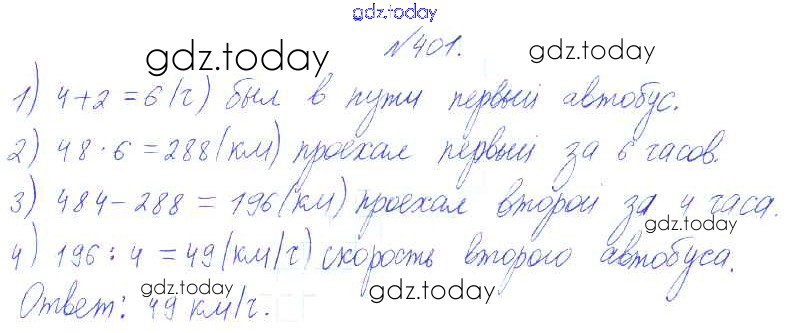 gdz.today
gdz.today gdz.today
№401.
1) 4+2=6(ч) был в пути первый автобус.
2) 48·6=288(км) проехал первый за 6 часов.
gdz.today
3) 484-288=196(км) проехал второй за 4 часа.
gdz.today
4) 196:4=49(км/ч) скорость второго автобуса.
Ответ: 49 км/ч.
gdz.today gdz.today